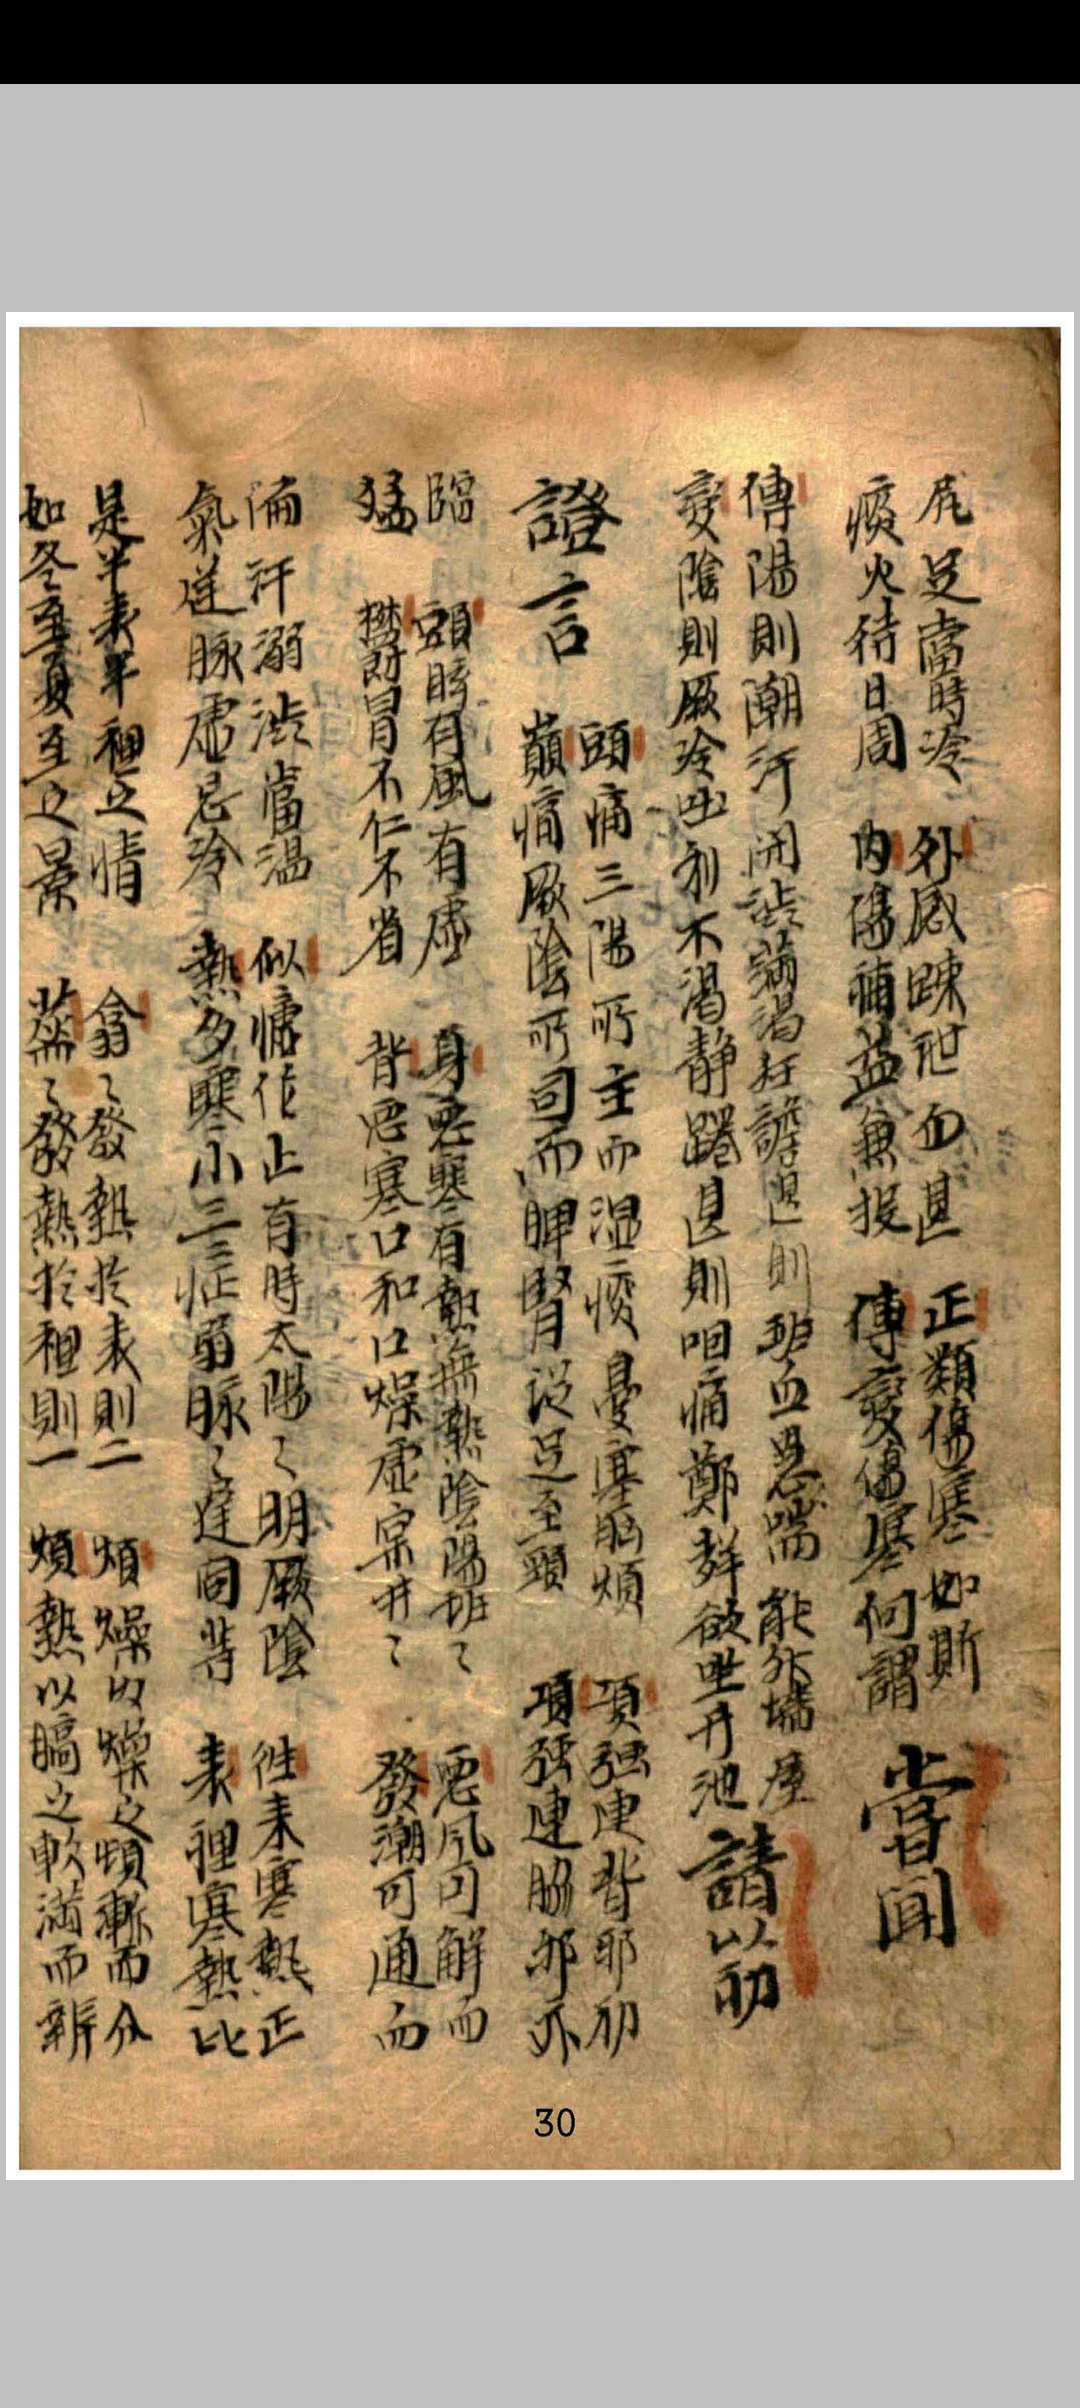 足當時冷　外感疎泄血甚　正類傷寒如斯
痰火待日周　内傷補益兼投　傳變傷寒何謂　嘗聞
傳陽則潮汗閉澁滿渴狂譫退則班血愚喘能外墻
變陰則厥冷吐利不渴靜踡退則咽痛鄭欲井池　請以初
證言
頭痛三陽所主而濕痰憂寒腦煩　項强連背耶初
巔痛厥陰所司而脾腎從足至頭　項强連脇耶外
臨　頭眩有風有虚　身惡寒有熱無熱陰陽班〻　惡風可解而
猛　欝冒不仁不省　背惡寒口和口燥虚井〻　發潮可通而
漏汗溺澁當温　似瘧作止有時太陽〻明厥陰　徃来寒熱正
氣逆脉虚忌冷　熱多寒小三弱脉〻遲同背　表裡寒熱比
是半表半裡之情　翕〻發熱於表則二　煩燥以燥之煩漸而分
如冬至夏至之景　〻發熱於裡則一　煩熱以膈之軟滿而辨
30